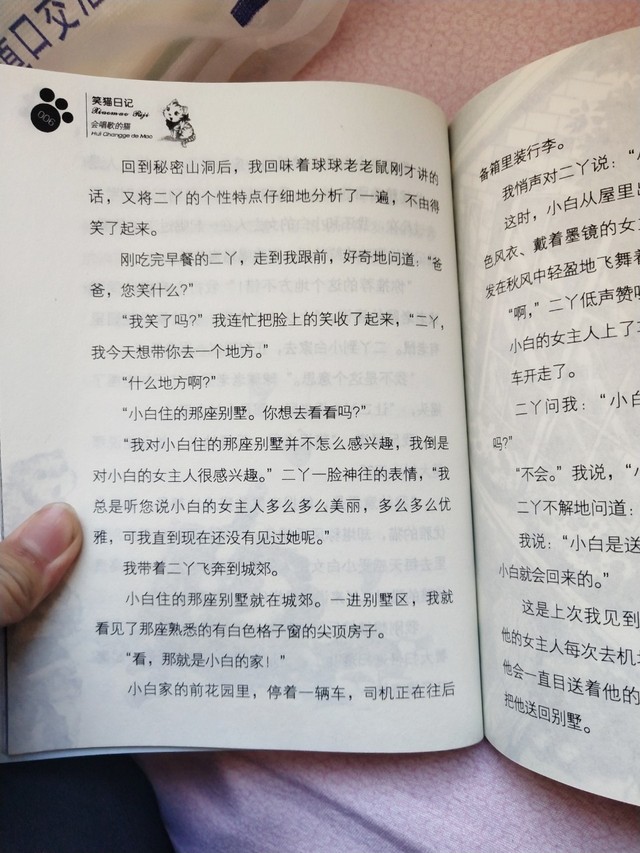 慎口交
006
笑猫日记
Xiaomao Riji
会唱歌的猫
Hui Changge de Mao
回到秘密山洞后，我回味着球球老老鼠刚才讲的
话，又将二丫的个性特点仔细地分析了一遍，不由得
笑了起来。
刚吃完早餐的二丫，走到我跟前，好奇地问道：“爸
爸，您笑什么？”
“我笑了吗？”我连忙把脸上的笑收了起来，“二丫，
我今天想带你去一个地方。”
“什么地方啊？”
“小白住的那座别墅。你想去看看吗？”
“我对小白住的那座别墅并不怎么感兴趣，我倒是
对小白的女主人很感兴趣。”二丫一脸神往的表情，“我
总是听您说小白的女主人多么多么美丽，多么多么优
雅，可我直到现在还没有见过她呢。”
我带着二丫飞奔到城郊。
小白住的那座别墅就在城郊。一进别墅区，我就
看见了那座熟悉的有白色格子窗的尖顶房子。
“看，那就是小白的家！”
小白家的前花园里，停着一辆车，司机正在往后
备箱里装行李。
我悄声对二丫说：“
这时，小白从屋里
色风衣、戴着墨镜的女
发在秋风中轻盈地飞舞着
“啊，”二丫低声赞
小白的女主人上了
车开走了。
二丫问我：“小白
吗？”
“不会。”我说，“
二丫不解地问道：
我说：“小白是送
小白就会回来的。”
这是上次我见到
他的女主人每次去机
他会一直目送着他的
把他送回别墅。